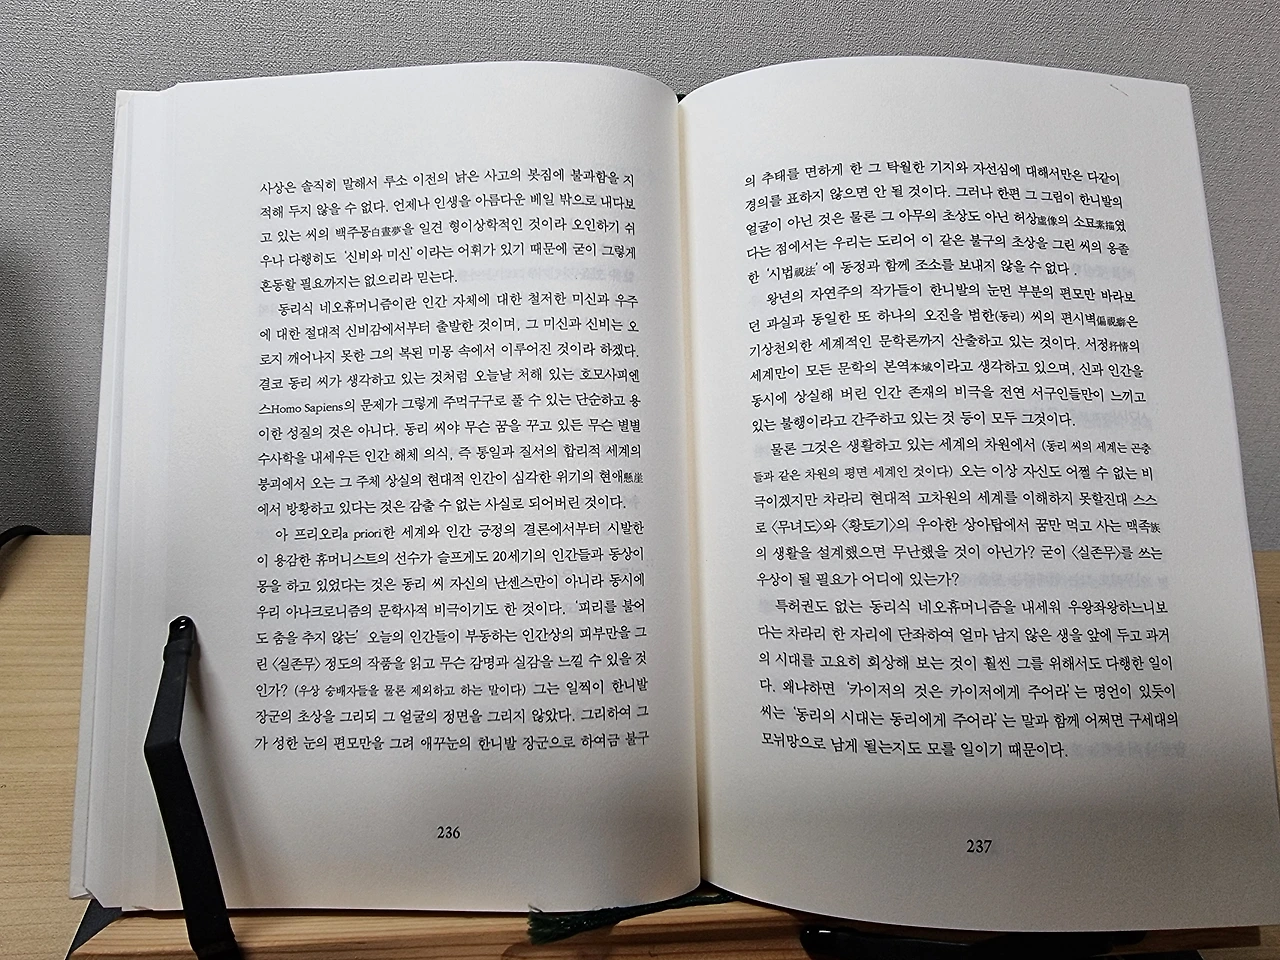 사상은 솔직히 말해서 루소 이전의 낡은 사고의 봇짐에 불과함을 지
적해 두지 않을 수 없다. 언제나 인생을 아름다운 베일 밖으로 내다보
고 있는 씨의 백주몽白晝夢을 일견 형이상학적인 것이라 오인하기 쉬
우나 다행히도 ‘신비와 미신’이라는 어휘가 있기 때문에 굳이 그렇게
혼동할 필요까지는 없으리라 믿는다.
동리식 네오휴머니즘이란 인간 자체에 대한 철저한 미신과 우주
에 대한 절대적 신비감에서부터 출발한 것이며, 그 미신과 신비는 오
로지 깨어나지 못한 그의 복된 미몽 속에서 이루어진 것이라 하겠다.
결코 동리 씨가 생각하고 있는 것처럼 오늘날 처해 있는 호모사피엔
스Homo Sapiens의 문제가 그렇게 주먹구구로 풀 수 있는 단순하고 용
이한 성질의 것은 아니다. 동리 씨야 무슨 꿈을 꾸고 있든 무슨 별별
수사학을 내세우든 인간 해체 의식, 즉 통일과 질서의 합리적 세계의
붕괴에서 오는 그 주체 상실의 현대적 인간이 심각한 위기의 현애懸崖
에서 방황하고 있다는 것은 감출 수 없는 사실로 되어버린 것이다.
아 프리오리a priori한 세계와 인간 긍정의 결론에서부터 시발한
이 용감한 휴머니스트의 선수가 슬프게도 20세기의 인간들과 동상이
몽을 하고 있었다는 것은 동리 씨 자신의 난센스만이 아니라 동시에
우리 아나크로니즘의 문학사적 비극이기도 한 것이다. ‘피리를 불어
도 춤을 추지 않는’ 오늘의 인간들이 부동하는 인간상의 피부만을 그
린 〈실존무〉 정도의 작품을 읽고 무슨 감명과 실감을 느낄 수 있을 것
인가? (우상 숭배자들을 물론 제외하고 하는 말이다) 그는 일찍이 한니발
장군의 초상을 그리되 그 얼굴의 정면을 그리지 않았다. 그리하여 그
가 성한 눈의 편모만을 그려 애꾸눈의 한니발 장군으로 하여금 불구
236
의 추태를 면하게 한 그 탁월한 기지와 자선심에 대해서만은 다같이
경의를 표하지 않으면 안 될 것이다. 그러나 한편 그 그림이 한니발의
얼굴이 아닌 것은 물론 그 아무의 초상도 아닌 허상虛像의 소묘素描였
다는 점에서는 우리는 도리어 이 같은 불구의 초상을 그린 씨의 옹졸
한 ‘시법視法’에 동정과 함께 조소를 보내지 않을 수 없다.
왕년의 자연주의 작가들이 한니발의 눈먼 부분의 편모만 바라보
던 과실과 동일한 또 하나의 오진을 범한(동리) 씨의 편시벽偏視癖은
기상천외한 세계적인 문학론까지 산출하고 있는 것이다. 서정抒情의
세계만이 모든 문학의 본역本域이라고 생각하고 있으며, 신과 인간을
동시에 상실해 버린 인간 존재의 비극을 전연 서구인들만이 느끼고
있는 불행이라고 간주하고 있는 것 등이 모두 그것이다.
물론 그것은 생활하고 있는 세계의 차원에서 (동리 씨의 세계는 곤충
들과 같은 차원의 평면 세계인 것이다) 오는 이상 자신도 어쩔 수 없는 비
극이겠지만 차라리 현대적 고차원의 세계를 이해하지 못할진대 스스
로 〈무녀도〉와 〈황토기〉의 우아한 상아탑에서 꿈만 먹고 사는 맥족族
의 생활을 설계했으면 무난했을 것이 아닌가? 굳이 〈실존무〉를 쓰는
우상이 될 필요가 어디에 있는가?
특허권도 없는 동리식 네오휴머니즘을 내세워 우왕좌왕하느니보
다는 차라리 한 자리에 단좌하여 얼마 남지 않은 생을 앞에 두고 과거
의 시대를 고요히 회상해 보는 것이 훨씬 그를 위해서도 다행한 일이
다. 왜냐하면 ‘카이저의 것은 카이저에게 주어라’는 명언이 있듯이
씨는 ‘동리의 시대는 동리에게 주어라’는 말과 함께 어쩌면 구세대의
모뉘망으로 남게 될는지도 모를 일이기 때문이다.
237